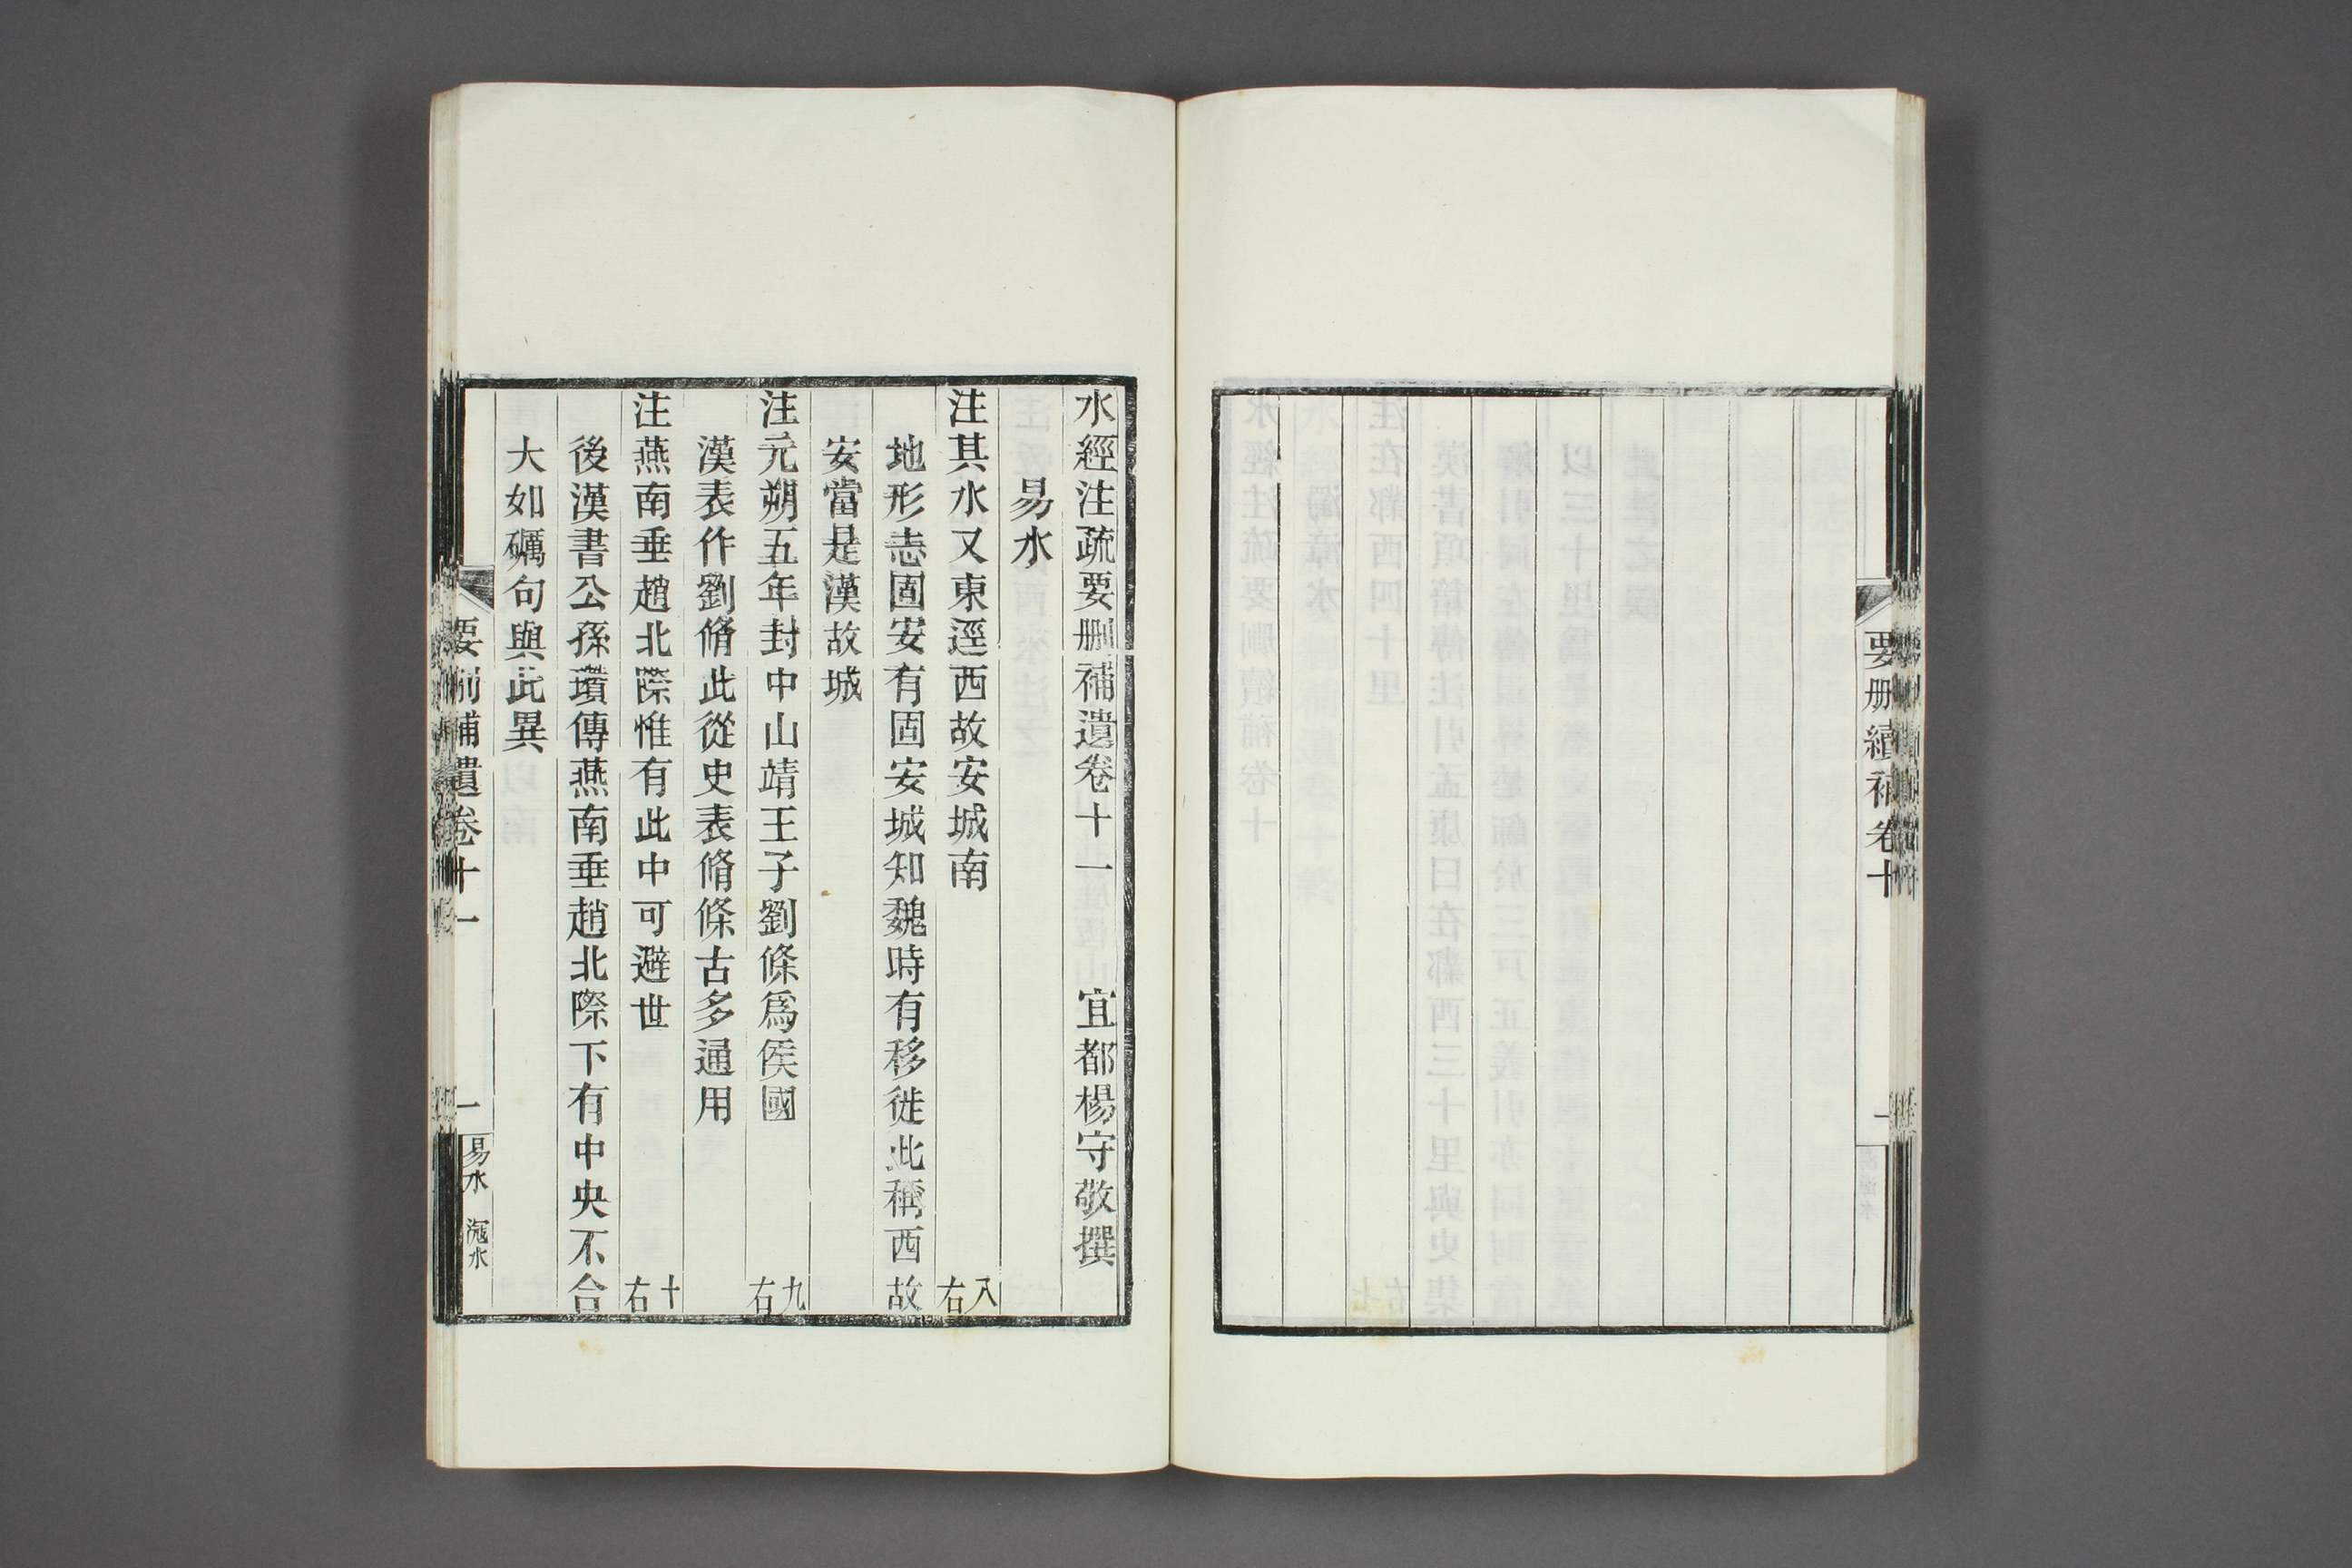 要刪續補卷十
一
水經注疏要刪補遺卷十一 宜都楊守敬撰
易水
注其水又東逕西故安城南 八右
地形志固安有固安城知魏時有移徙此稱西故
安當是漢故城
注元朔五年封中山靖王子劉條爲侯國 九右
漢表作劉脩此從史表脩條古多通用
注燕南垂趙北際惟有此中可避世 十右
後漢書公孫瓚傳燕南垂趙北際下有中央不合
大如礪句與此異
要刪補遺卷十一
一
易水 滱水